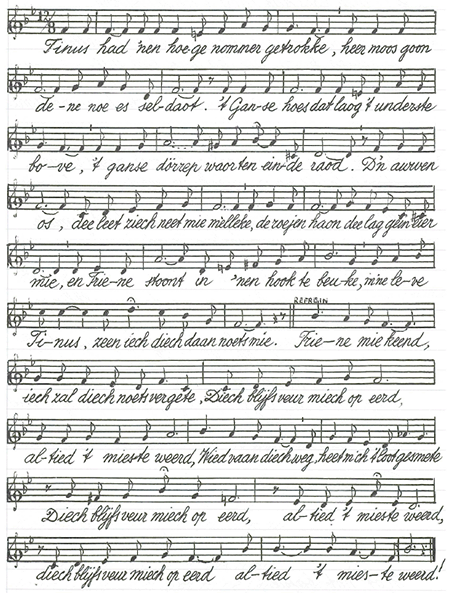 12/8
Tinus had 'nen hoege nommer getrokke, heer moos goon
de-ne noe es sel-daot. 't Gan-se hoes dat laog 't underste
bo-ve, 't ganse dörrep waor ten ein-de raod. D'n auwven
os, dee leet ziech neet mie mèlleke, de
mie, en Trie-ne stoont in 'nen hook te beu-ke, m'ne le-ve
Ti-nus, zeen iech diech daan noets mie. Trie-ne mie keend,
REFREIN
iech zal diech noets vergete, Diech blijfs veur miech op eerd,
al-tied 't mieste weerd, Wied vaan diech weg, heet mich 't Loot gesmete
Diech blijfs veur miech op eerd, al-tied 't mieste weerd,
diech blijfs veur miech op eerd al-tied 't mies-te weerd!